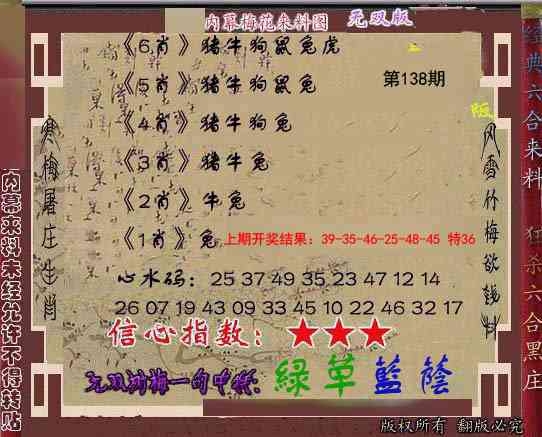 内幕梅花来料图 无双版
《6肖》猪牛狗鼠兔虎
《5肖》猪牛狗鼠兔 第138期
《4肖》猪牛狗兔
《3肖》猪牛兔
《2肖》牛兔
《1肖》兔 上期开奖结果：39-35-46-25-48-45 特36
心水码：25 37 49 35 23 47 12 14
26 07 19 43 09 33 45 10 22 46 32 17
信心指数：★★★
无双刘梅一句中特：绿草蓝荫
版权所有 翻版必究
寒梅屠庄生肖
风雪竹梅欲钱料
内幕来料未经允许不得转贴
经典六合来料
狂杀六合黑庄